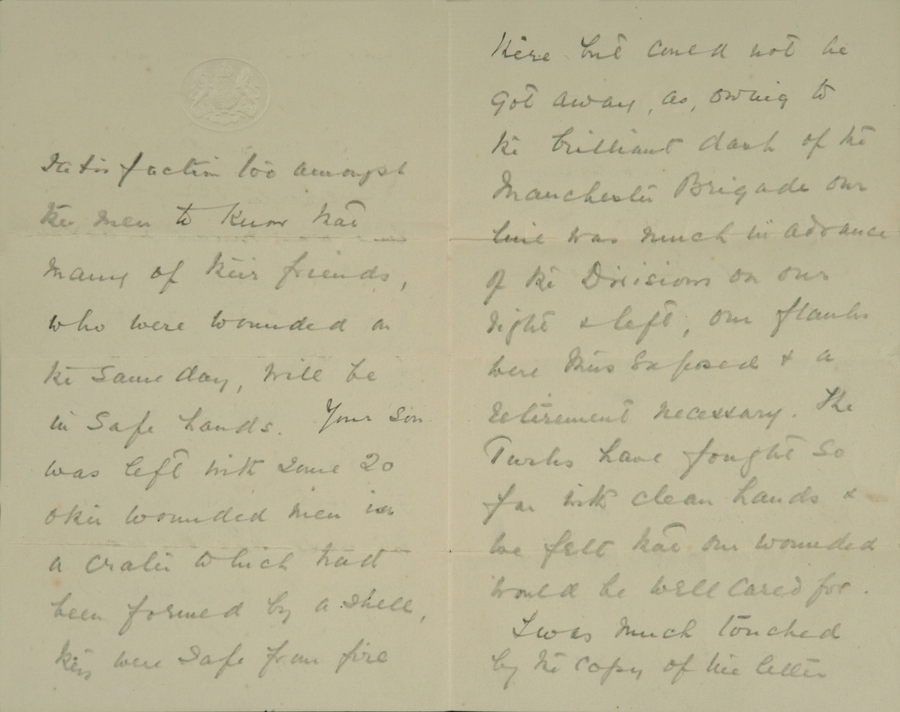 satisfaction too amongst
the men to know that
many of their friends,
who were wounded on
the same day, will be
in safe hands. Your son
was left with some 20
other wounded men in
a crater which had
been formed by a shell,
they were safe from fire
there but could not be
got away, as, owing to
the brilliant dash of the
Manchester Brigade our
line was much in advance
of the Divisions on our
right & left, our flanks
were thus exposed & a
retirement necessary. The
Turks have fought so
far with clean hands &
we felt that our wounded
would be well cared for.
I was much touched
by the copy of the letter